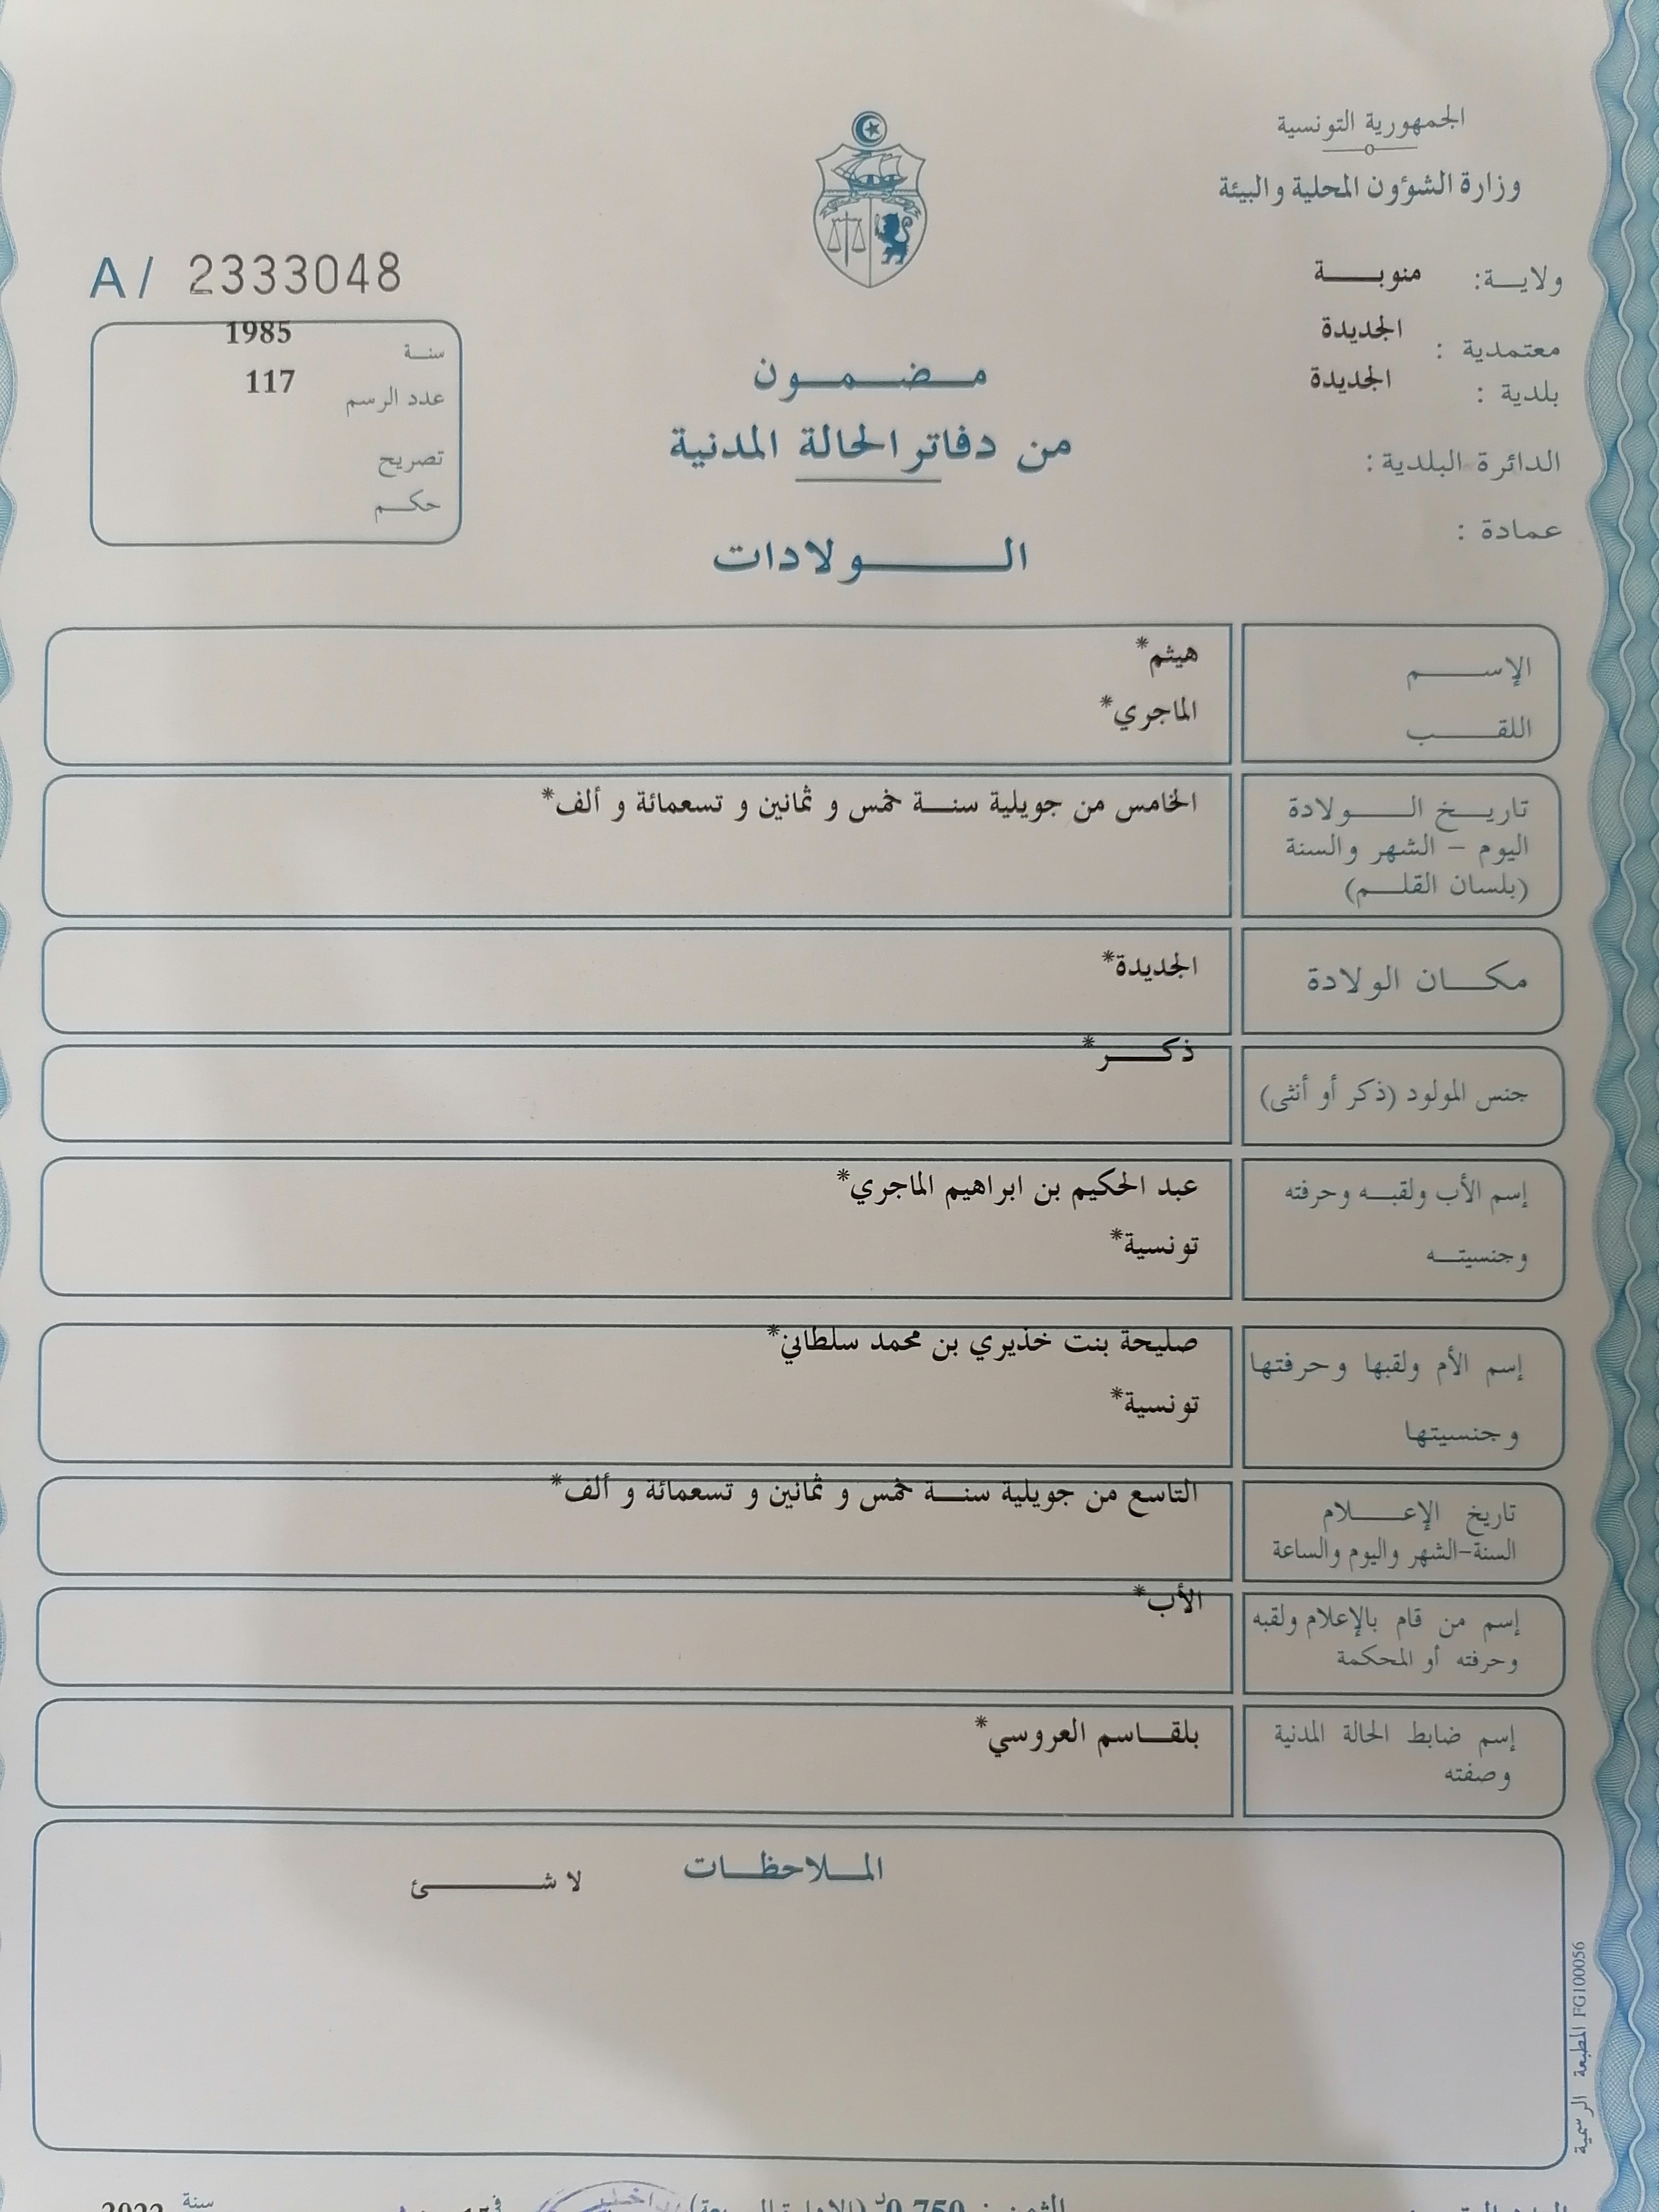 الجمهورية التونسية
وزارة الشؤون المحلية والبيئة
ولاية: منوبة
معتمدية : الجديدة
بلدية : الجديدة
الدائرة البلدية :
عمادة :
A/ 2333048
سنة 1985
عدد الرسم 117
تصريح
حكم
مضمون
من دفاتر الحالة المدنية
الولادات
الإسم هيثم*
اللقب الماجري*
تاريخ الولادة الخامس من جويلية سنة خمس و ثمانين و تسعمائة و ألف*
اليوم – الشهر والسنة
(بلسان القلم)
مكان الولادة الجديدة*
جنس المولود (ذكر أو أنثى) ذكر*
إسم الأب ولقبه وحرفته عبد الحكيم بن ابراهيم الماجري*
وجنسيته تونسية*
إسم الأم ولقبها وحرفتها صليحة بنت خذيري بن محمد سلطاني*
وجنسيتها تونسية*
تاريخ الإعلام التاسع من جويلية سنة خمس و ثمانين و تسعمائة و ألف*
السنة-الشهر واليوم والساعة
إسم من قام بالإعلام ولقبه الأب*
وحرفته أو المحكمة
إسم ضابط الحالة المدنية بلقاسم العروسي*
وصفته
الملاحظات
لا شئ
المطبعة الرسمية FG100056
الثمن : 0,750
سنة 2022